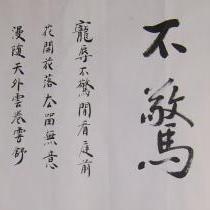 不驚
寵辱不驚閒看庭前
花開花落去留無意
漫隨天外雲卷雲舒